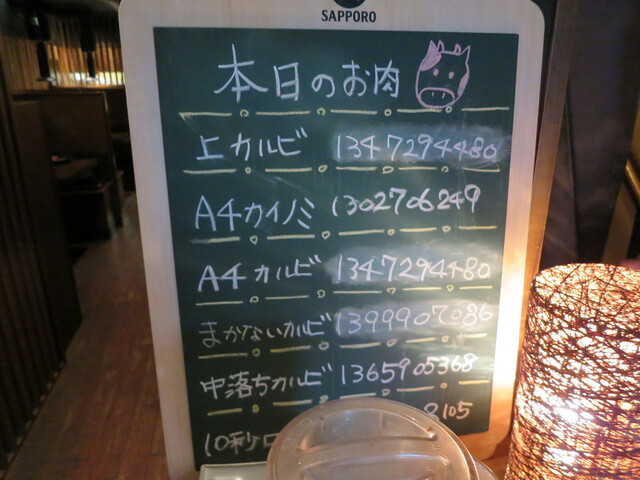 SAPPORO
本日のお肉
上カルビ 1347294480
A4カイノミ 1302706249
A4カルビ 1347294480
まかないカルビ 1399907086
中落ちカルビ 1365905368
10秒ロ 8105